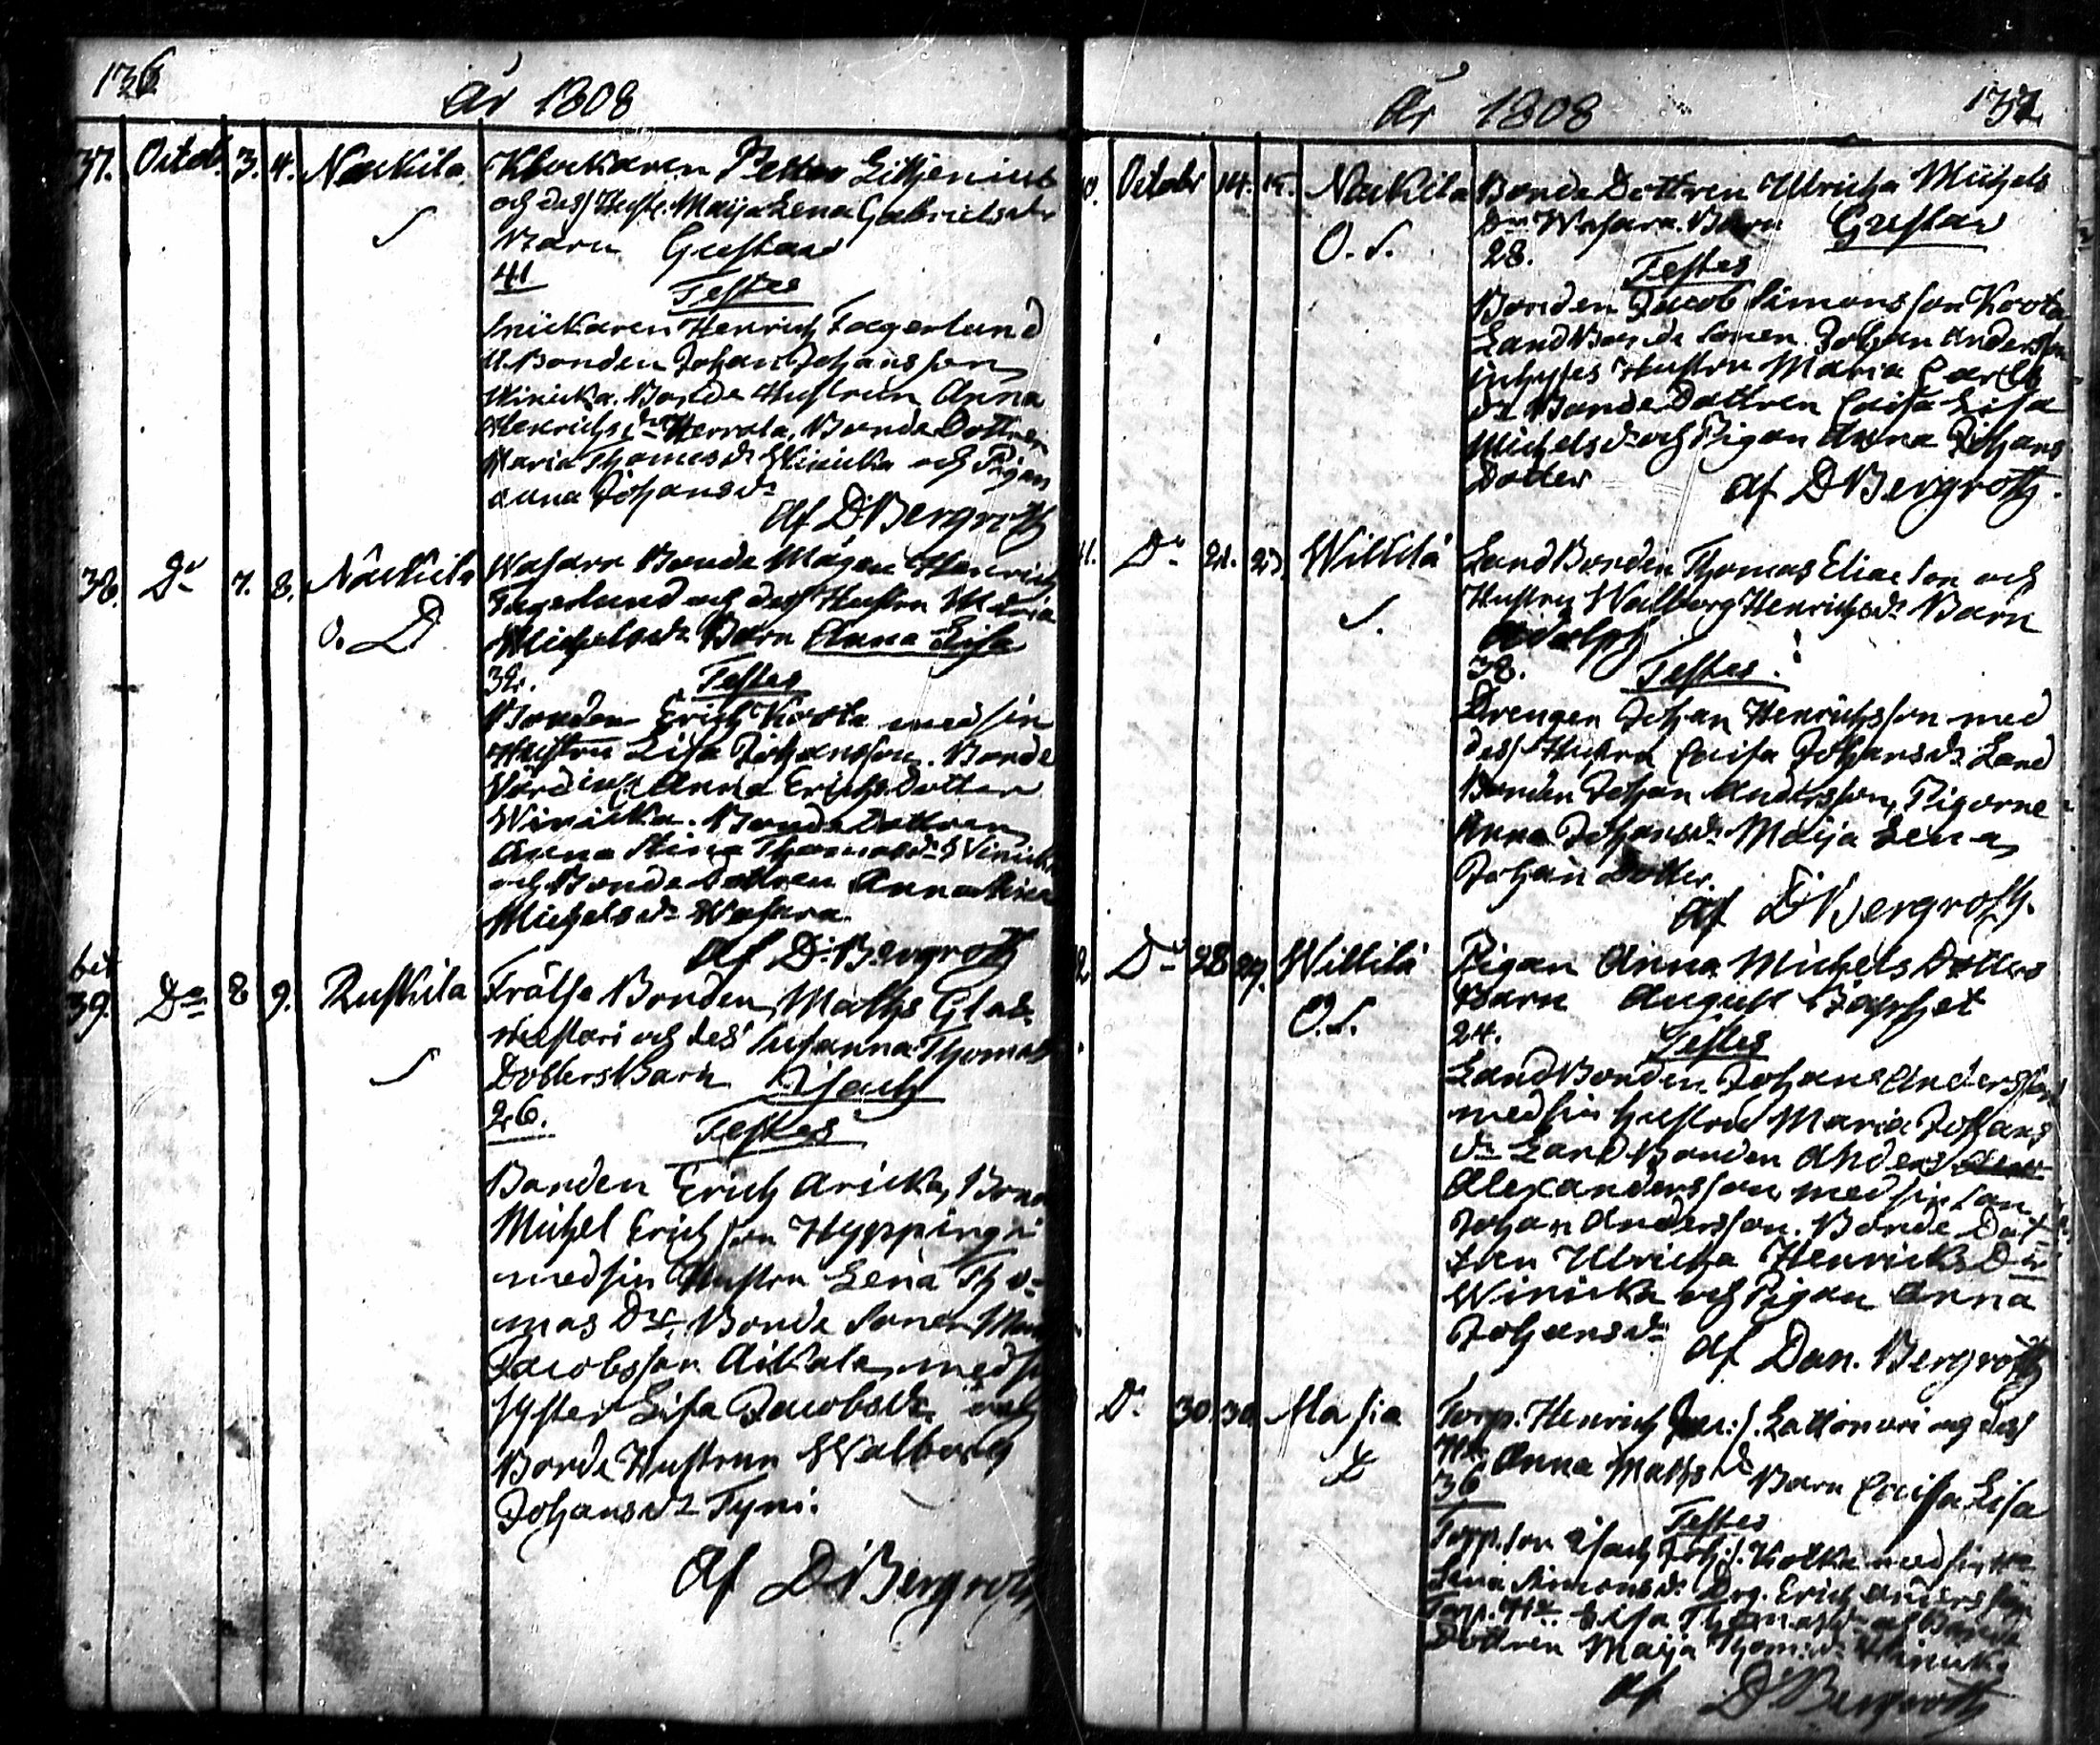 136
År 1808
37. Octob. 3. 4. Nackila. Klockaren Petter Liljenius
och dess Hustr. Maija Lena Gabrielsdr
Barn Gustav
41
Testes
Snickaren Henrich Fagerlund
U. Bonden Johan Johansson
Winicka. Bonde Hustrun Anna
Henrichsdr Herrala, Bonde Dottren
Maria Thomasdr Winicka och Pigan
Anna Johansdr
af D. Bergroth
38. Do 7. 8. Näckila Wasara Bonde Mågen Henrich
O. D Fagerlund och dess Hustru Maria
Michelsdr Barn Anna Lisa
32.
Testes
Bonden Erich Koota med sin
Hustru Lisa Johansson. Bonde
Värdin Anna Erichsdotter
Winicka. Bonde Dottren
Anna Stina Thomasdr Winicka
och Bonde Dottren Anna Stina
Michelsdr Wasara.
af D. Bergroth
39. Do 8 9. Ruskila Frälse Bonden Mathz Glas-
mästari och des Susanna Thomas
Dotters Barn Isach
26.
Testes
Bonden Erich Aricka, Bond
Michel Erichson Hyppingi
med sin Hustru Lena Tho-
mas Dr, Bonde Sonen
Jacobsson Aikala, med s
syster Lisa Jacobsdr och
Bonde Hustrun Walborg
Johansdr Tyni.
af D. Bergroth
År 1808
137
Octobr 14. 15. Nackila Bonde Dottren Ulricha Michels
O. S. Dr Wasara. Barn Gustav
28.
Testes
Bonden Jacob Simonsson Koota
Land Bonde Sonen Johan Andersson
inhyses Hustru Maria Carls
dr Bonde Dottren Caisa Lisa
Michelsdr och Pigan Anna Johans
Dotter
af D. Bergroth.
Do 22. 23. Willilä Land Bonden Thomas Eliae Son och
Hustru Walborg Henrichsdr Barn
Adolph
38.
Testes.
Drengen Johan Henrichsson med
dess Hustru Caisa Johansdr Land
Bonden Johan Andersson, Pigorne
Anna Johansdr Maija Lena
Johan Dotter.
af D. Bergroth.
Do 28 29. Willilä Pigan Anna Michels Dotters
O. S. Barn August
24.
Testes
Land Bonden Johan Andersson
med sin hustru Maria Johans
dr Land Bonden Anders
Alexandersson med sin son
Johan Andersson. Bonde Dot-
tren Ulricha Henricks Dr
Winicka och Pigan Anna
Johansdr
af Dan. Bergroth
Do 30. 30. Masia Torp. Henrich Lattomeri og dess
Hu Anna Matsdr Barn Caisa Lisa
36
Testes
Torp. son Isach Joh:s. Kolka med sin Hu
Lena Simonsdr Drg. Erich Anderss
Torp. Hu Lisa Thomasdr och Bonde
Dottren Maija Thom:dr Winicka
af D. Bergroth